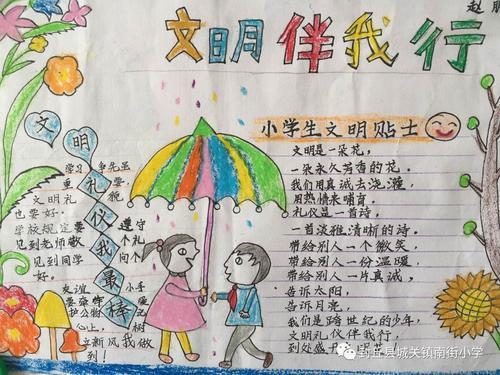 赵
文明伴我行
小学生文明贴士
文明是一朵花，
一朵永久芳香的花。
我们用真诚去浇灌，
用热情来哺育。
礼仪是一首诗。
一首淡雅清晰的诗。
带给别人一个微笑，
带给别人一份温暖
带给别人一片真诚。
告诉太阳，
告诉月亮，
我们是跨世纪的少年，
文明礼仪伴我行，
到处盛开
文明礼仪我最棒
学习 争先显
重 要
文明礼 貌
也要好。 遵守
学校规定要 个礼
见到老师敬 问个
见到同学
好。
友谊 小手
要牵 暖
护公物 况
心上， 树
新风我做
到！
封丘县城关镇南街小学